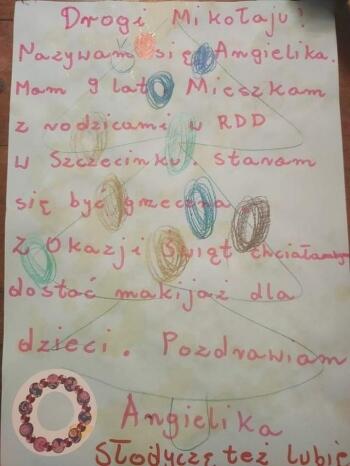 Drogi Mikołaju!
Nazywam się Angielika.
Mam 9 lat. Mieszkam
z rodzicami w RDD
w Szczecinku. staram
się być grzeczna.
Z Okazji Świąt chciałabym
dostać makijaż dla
dzieci. Pozdrawiam
Angielika
Słodycze też lubię